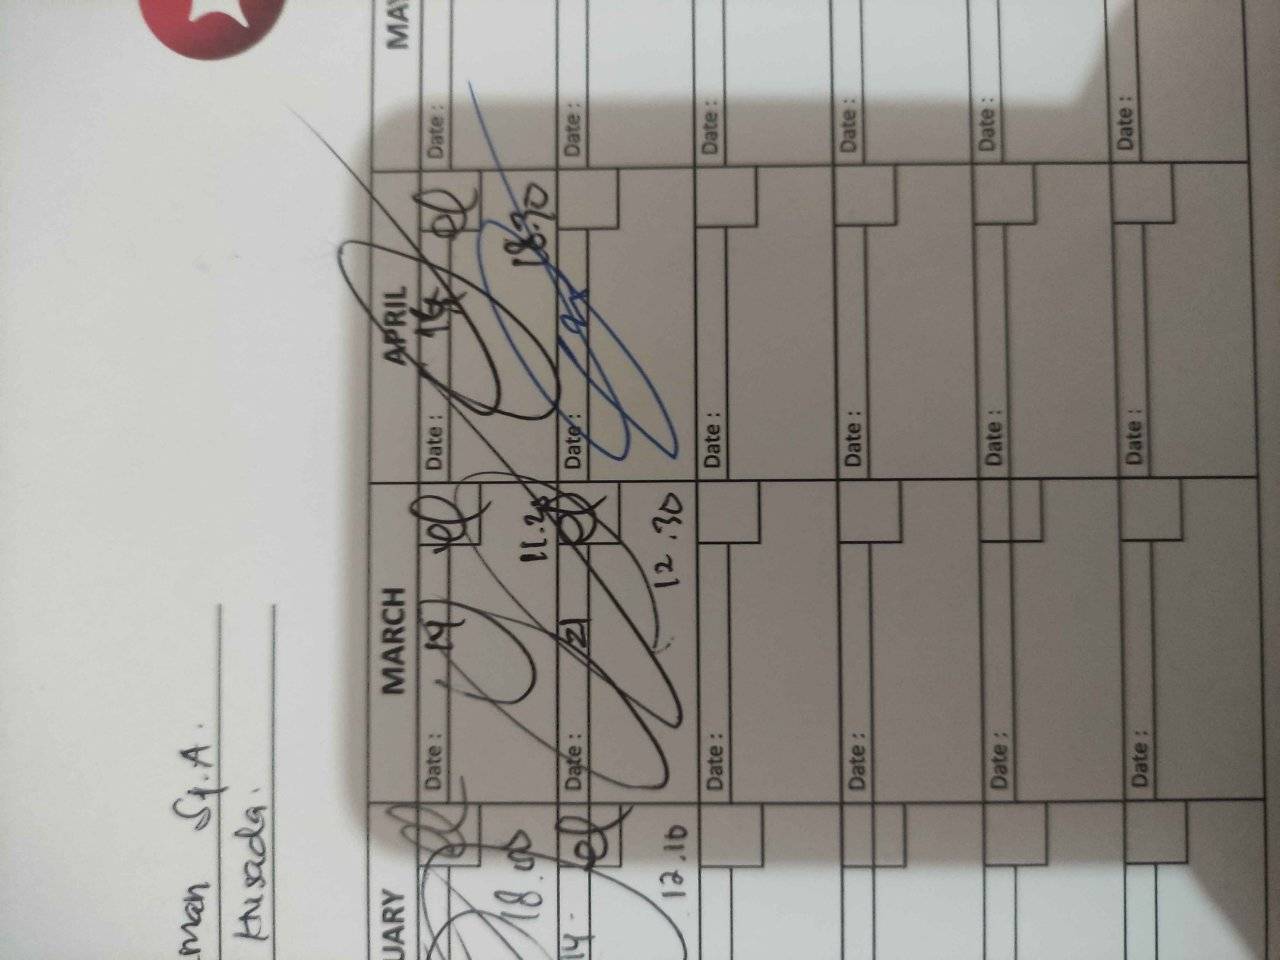 man Sp.A.
Husada.
UARY MARCH APRIL MAY
Date : 14 el Date : 14 el Date :
18.00 11.20 18.30
14. el Date : 21 el Date : Date :
12.10 12.30
Date : Date : Date :
Date : Date : Date :
Date : Date : Date :
Date : Date : Date :